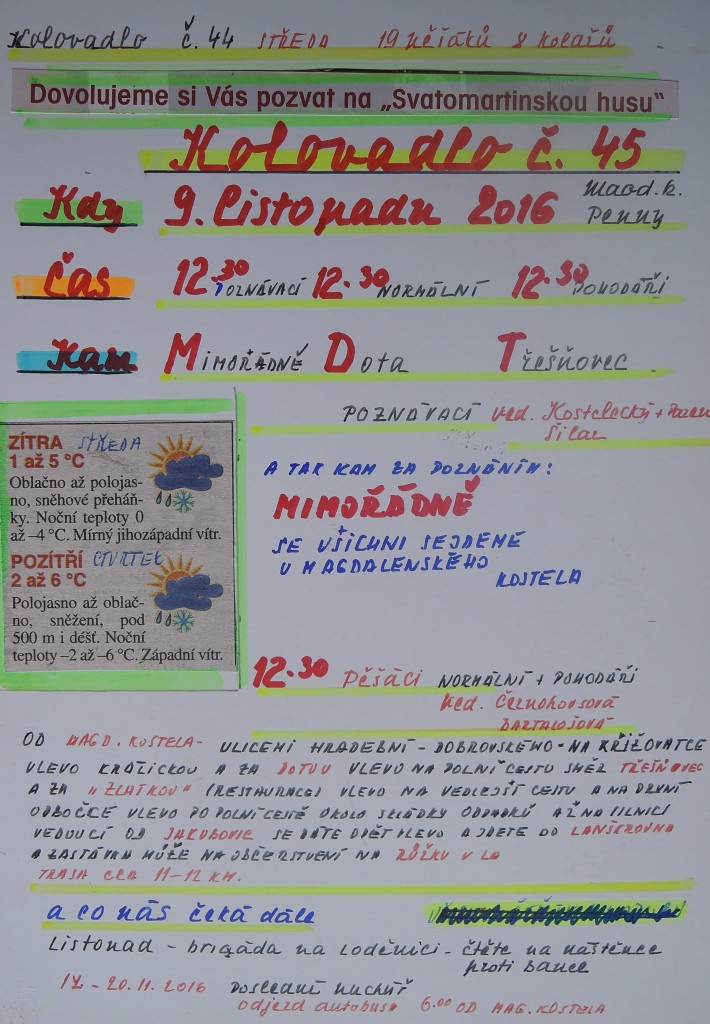 Kolovadlo č. 44 STŘEDA 19 PĚŠÁKŮ 8 KOLAŘŮ
Dovolujeme si Vás pozvat na „Svatomartinskou husu“
Kolovadlo č. 45
Kdy 9. Listopadu 2016 Magd. k.
Penny
Čas 12.30 POZNÁVACÍ 12.30 NORMÁLNÍ 12.30 POHODÁŘI
Kam MIMOŘÁDNĚ Dota Třešňovec
POZNÁVACÍ ved. Kostelecký +
Šilar
ZÍTRA STŘEDA
1 až 5 °C
Oblačno až polojas-
no, sněhové přeháň-
ky. Noční teploty 0
až –4 °C. Mírný jihozápadní vítr.
POZÍTŘÍ ČTVRTEK
2 až 6 °C
Polojasno až oblač-
no, sněžení, pod
500 m i déšť. Noční
teploty –2 až –6 °C. Západní vítr.
A TAK KAM ZA POZNÁNÍM:
MIMOŘÁDNĚ
SE VŠICHNI SEJDEME
U MAGDALENSKÉHO
KOSTELA
12.30 PĚŠÁCI NORMÁLNÍ + POHODÁŘI
Ved. Černohousová
BARTALOŠOVÁ
OD MAGD. KOSTELA - ULICEMI HRADEBNÍ - DOBROVSKÉHO - NA KŘIŽOVATCE
VLEVO KRÁLICKOU A ZA DOTOU VLEVO NA POLNÍ CESTU SMĚR TŘEŠŇOVEC
A ZA „ZLATKOU“ (RESTAURACE) VLEVO NA VEDLEJŠÍ CESTU A NA PRVNÍ
ODBOČCE VLEVO PO POLNÍ CESTĚ OKOLO SKLÁDKY ODPADKŮ AŽ NA SILNICI
VEDOUCÍ OD JAKUBOVIC SE DÁTE OPĚT VLEVO A JDETE DO LANŠKROUNA
A ZASTÁVKA MŮŽE NA OBČERSTVENÍ NA RŮŽKU V LA
TRASA CCA 11-12 KM.
a co nás čeká dále
Listopad - brigáda na loděnici - čtěte na nástěnce
proti bance
17. - 20.11. 2016 Poslední puchýř
odjezd autobusu 6.00 OD MAG. KOSTELA